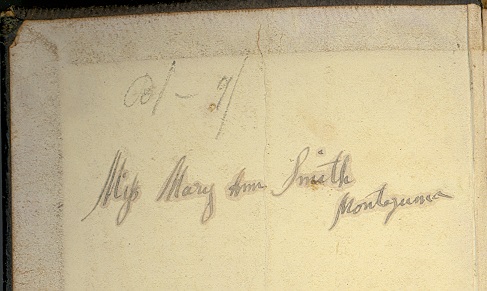 Miss Mary Ann Smith
Montezuma